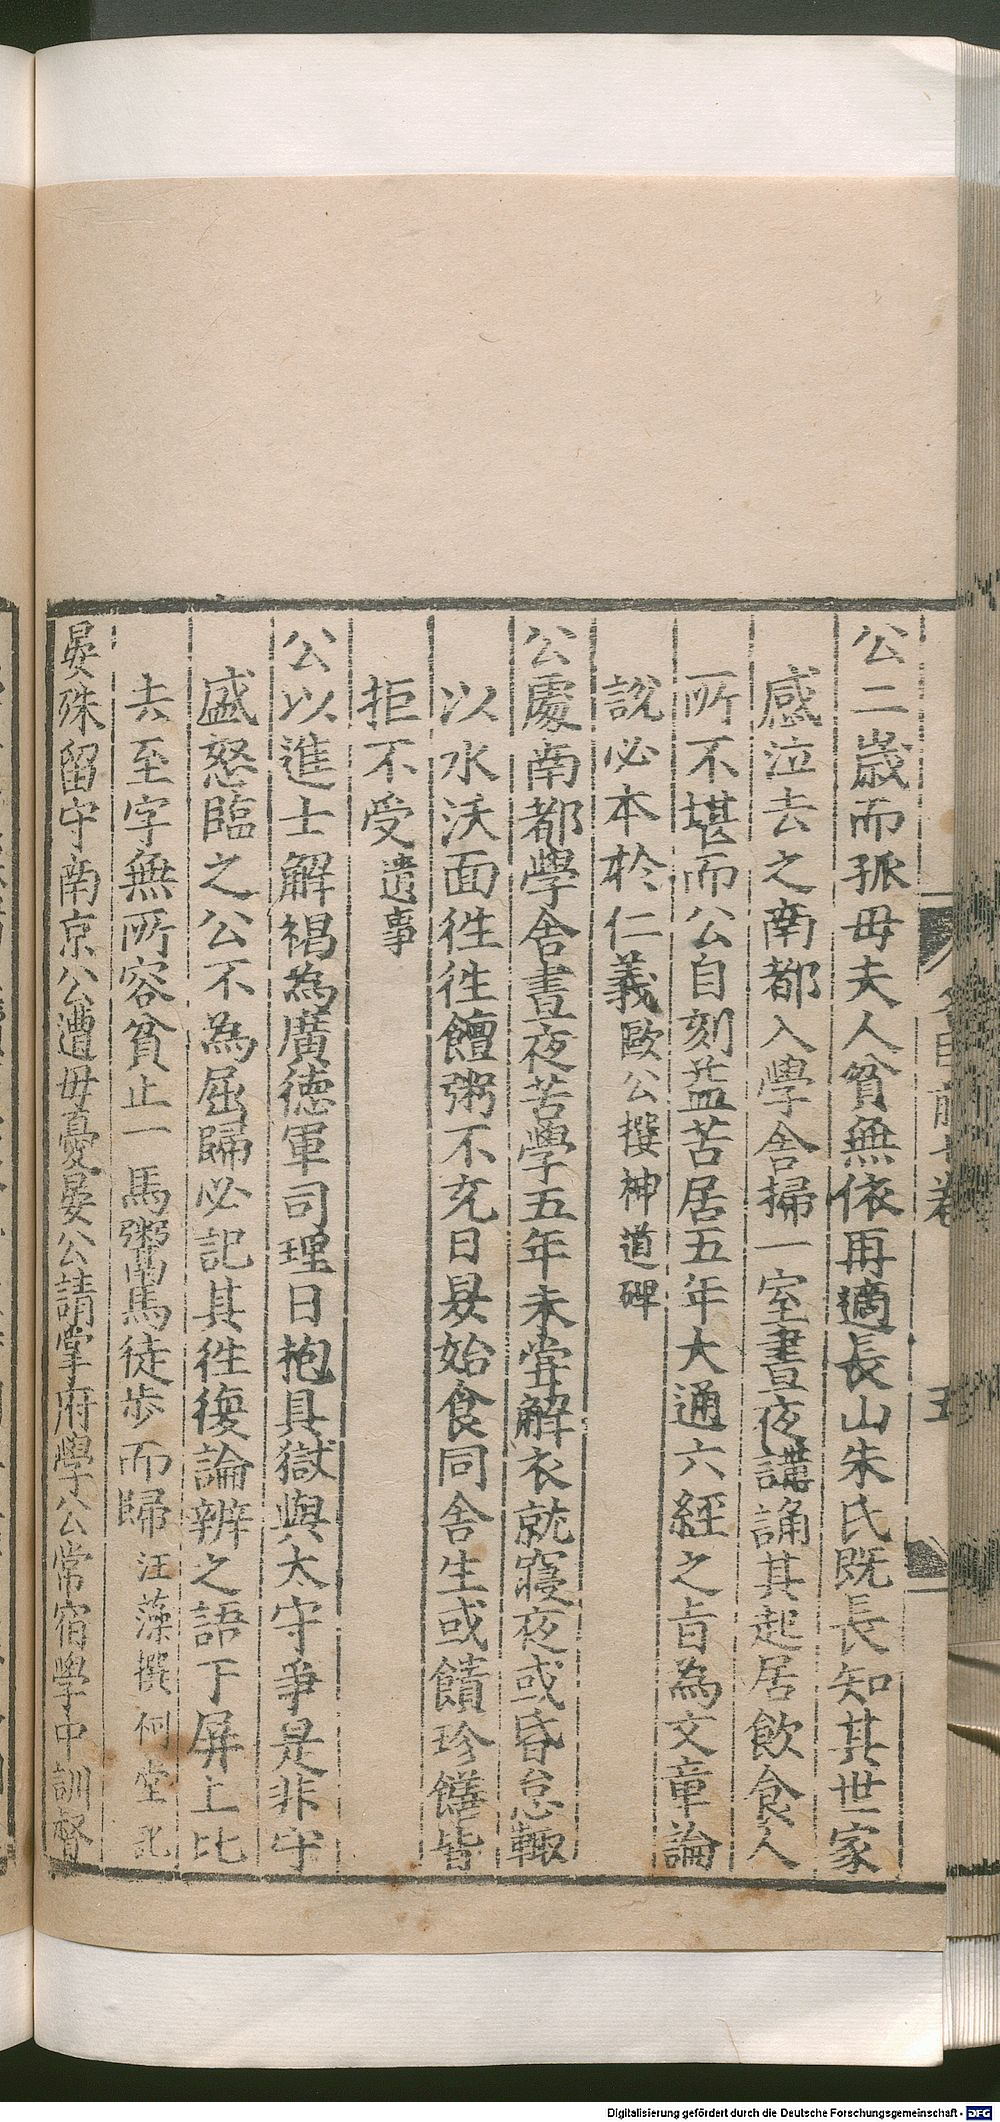 公二歲而孤毋夫人貧無依再適長山朱氏既長知其世家
感泣去之南都入學舎掃一室晝夜講誦其起居飲食人
所不堪而公自刻益苦居五年大通六經之旨為文章論
說必本於仁義歐公撰神道碑
公處南都學舎晝夜苦學五年未甞解衣就寢夜或昏怠輙
以水沃面徃徃饘粥不充日昃始食同舎生或饋珍饍皆
拒不受遺事
公以進士解褐為廣德軍司理日抱具獄與太守爭是非守
盛怒臨之公不為屈歸必記其徃復論辨之語于屏上比
去至字無所容貧止一馬鬻馬徒歩而歸汪藻撰祠堂記
晏殊留守南京公遭毋憂晏公請掌府學公常宿學中訓督
五
Digitalisierung gefördert durch die Deutsche Forschungsgemeinschaft - DFG